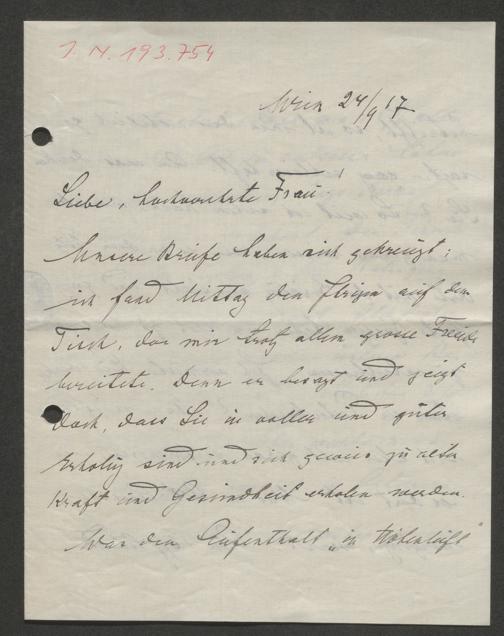 J. N. 193.754
Wien 24/9 17
Liebe, hochverehrte Frau!
Unsere Briefe haben sich gekreuzt;
ich fand Mittag den Ihrigen auf dem
Tisch, der mir trotz allem grosse Freude
bereitete. Denn er besagt und zeigt
doch, dass Sie in voller und guter
Erholung sind und sich gewiss zu alter
Kraft und Gesundheit erholen werden.
War der Aufenthalt „in Höhenluft"